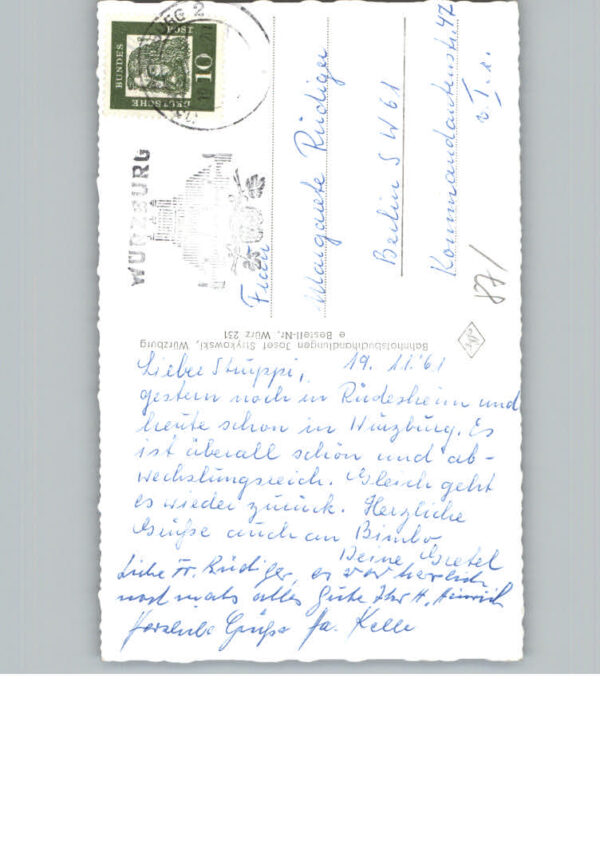 Lieber Struppi, 19.11.61
gestern noch in Rüdesheim und
heute schon in Würzburg. Es
ist überall schön und ab-
wechslungsreich. Gleich geht
es wieder zurück. Herzliche
Grüße auch an Bimbo
Deine Gretel
Liebe Fr. Rüdiger, es war herrlich
nochmals alles Gute Ihr H. Heinrich
Herzliche Grüße Fa. Kelle
Frau
Margarete Rüdiger
Berlin SW 61
Kommandantenstr. 47
v. I. r.
87/
WÜRZBURG
DEUTSCHE
BUNDES
POST
10
Bahnhofsbuchhandlungen Josef Strykowski, Würzburg
e Bestell-Nr. Würz 231